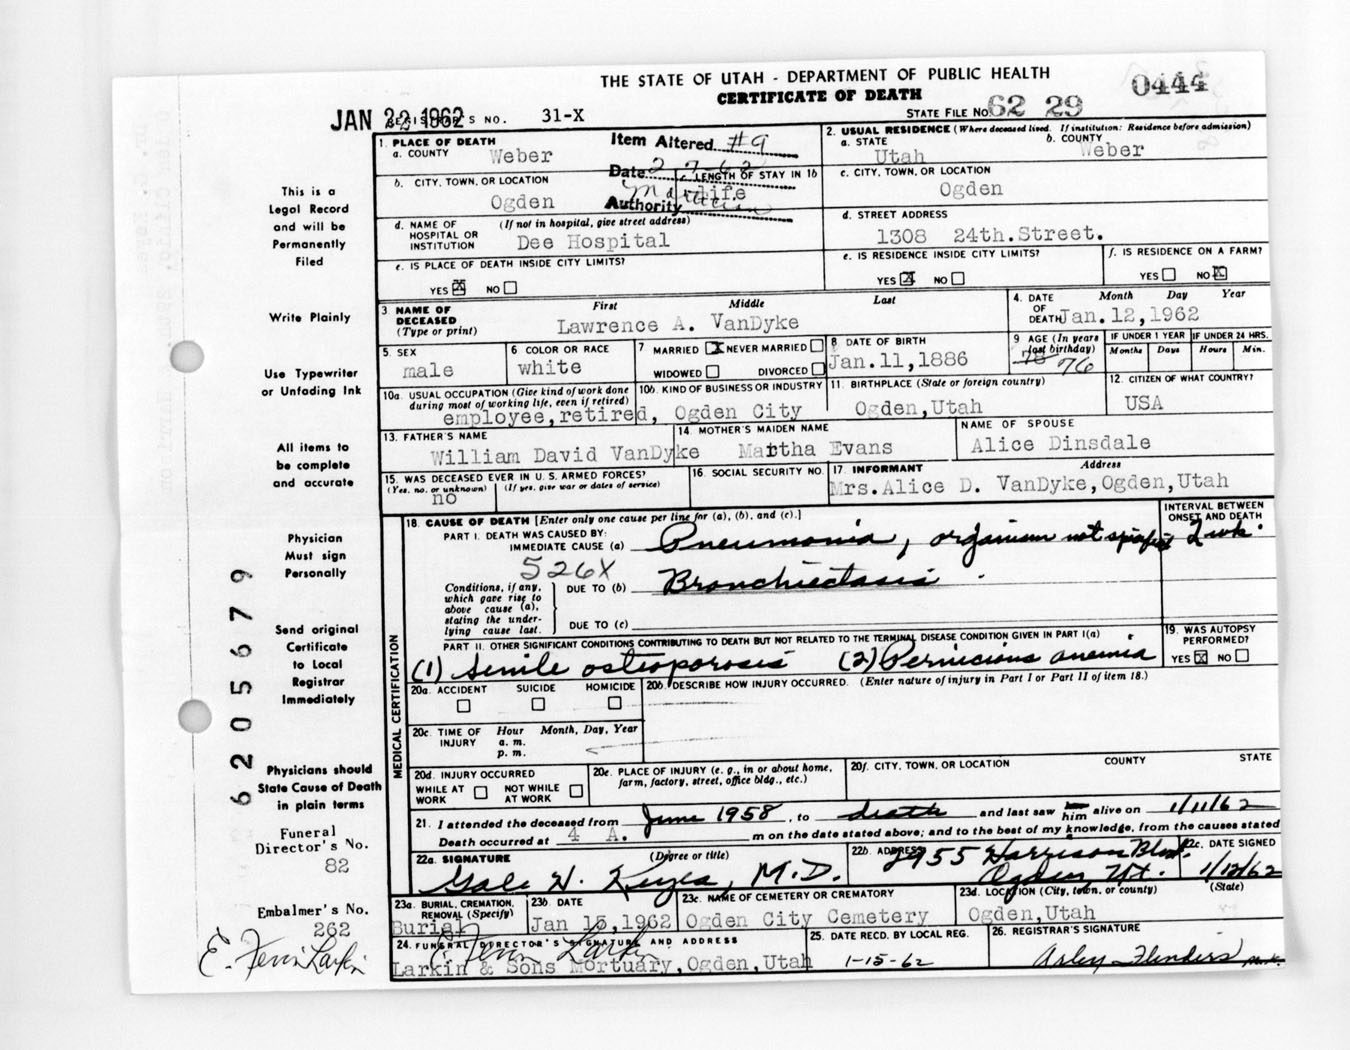 THE STATE OF UTAH - DEPARTMENT OF PUBLIC HEALTH
CERTIFICATE OF DEATH
0444
JAN 22 1962
REGISTRAR'S NO. 31-X
STATE FILE NO. 62 29
Item Altered #9
Date 2-7-62
Authority
This is a
Legal Record
and will be
Permanently
Filed
Write Plainly
Use Typewriter
or Unfading Ink
All items to
be complete
and accurate
Physician
Must sign
Personally
Send original
Certificate
to Local
Registrar
Immediately
Physicians should
State Cause of Death
in plain terms
Funeral
Director's No.
82
Embalmer's No.
262
E. Fenn Larkin
6205679
1. PLACE OF DEATH
a. COUNTY Weber
2. USUAL RESIDENCE (Where deceased lived. If institution: Residence before admission)
a. STATE Utah
b. COUNTY Weber
b. CITY, TOWN, OR LOCATION Ogden
LENGTH OF STAY IN 1b life
c. CITY, TOWN, OR LOCATION Ogden
d. NAME OF HOSPITAL OR INSTITUTION (If not in hospital, give street address) Dee Hospital
d. STREET ADDRESS 1308 24th.Street.
e. IS PLACE OF DEATH INSIDE CITY LIMITS?
YES X NO
e. IS RESIDENCE INSIDE CITY LIMITS?
YES X NO
f. IS RESIDENCE ON A FARM?
YES NO X
3. NAME OF DECEASED (Type or print) First Middle Last
Lawrence A. VanDyke
4. DATE OF DEATH Month Day Year
Jan.12,1962
5. SEX male
6 COLOR OR RACE white
7 MARRIED X NEVER MARRIED
WIDOWED DIVORCED
8 DATE OF BIRTH Jan.11,1886
9 AGE (In years last birthday) 76
IF UNDER 1 YEAR Months Days
IF UNDER 24 HRS. Hours Min.
10a. USUAL OCCUPATION (Give kind of work done during most of working life, even if retired)
10b. KIND OF BUSINESS OR INDUSTRY
employee,retired, Ogden City
11. BIRTHPLACE (State or foreign country) Ogden,Utah
12. CITIZEN OF WHAT COUNTRY? USA
13. FATHER'S NAME William David VanDyke
14. MOTHER'S MAIDEN NAME Martha Evans
NAME OF SPOUSE Alice Dinsdale
15. WAS DECEASED EVER IN U. S. ARMED FORCES?
(Yes, no, or unknown) (If yes, give war or dates of service)
no
16. SOCIAL SECURITY NO.
17. INFORMANT Address
Mrs.Alice D. VanDyke,Ogden,Utah
18. CAUSE OF DEATH [Enter only one cause per line for (a), (b), and (c).]
INTERVAL BETWEEN ONSET AND DEATH
PART I. DEATH WAS CAUSED BY:
IMMEDIATE CAUSE (a) Pneumonia, organism not specified 2 wk.
526X
Conditions, if any, which gave rise to above cause (a), stating the underlying cause last.
DUE TO (b) Bronchiectasis
DUE TO (c)
PART II. OTHER SIGNIFICANT CONDITIONS CONTRIBUTING TO DEATH BUT NOT RELATED TO THE TERMINAL DISEASE CONDITION GIVEN IN PART I(a)
(1) Senile osteoporosis (2) Pernicious anemia
19. WAS AUTOPSY PERFORMED?
YES X NO
MEDICAL CERTIFICATION
20a. ACCIDENT SUICIDE HOMICIDE
20b. DESCRIBE HOW INJURY OCCURRED. (Enter nature of injury in Part I or Part II of item 18.)
20c. TIME OF INJURY Hour Month, Day, Year
a. m.
p. m.
20d. INJURY OCCURRED
WHILE AT WORK NOT WHILE AT WORK
20e. PLACE OF INJURY (e. g., in or about home, farm, factory, street, office bldg., etc.)
20f. CITY, TOWN, OR LOCATION COUNTY STATE
21. I attended the deceased from June 1958, to death and last saw him alive on 1/11/62
Death occurred at 4 A. m on the date stated above; and to the best of my knowledge, from the causes stated
22a. SIGNATURE (Degree or title)
Gale H. Keyes, M.D.
22b. ADDRESS 2955 Harrison Blvd.
Ogden Ut.
22c. DATE SIGNED 1/12/62
23a. BURIAL, CREMATION, REMOVAL (Specify) Burial
23b. DATE Jan 15,1962
23c. NAME OF CEMETERY OR CREMATORY Ogden City Cemetery
23d. LOCATION (City, town, or county) (State)
Ogden,Utah
24. FUNERAL DIRECTOR'S SIGNATURE AND ADDRESS
E. Fenn Larkin
Larkin & Sons Mortuary,Ogden,Utah
25. DATE RECD. BY LOCAL REG. 1-15-62
26. REGISTRAR'S SIGNATURE
Arley Flinders